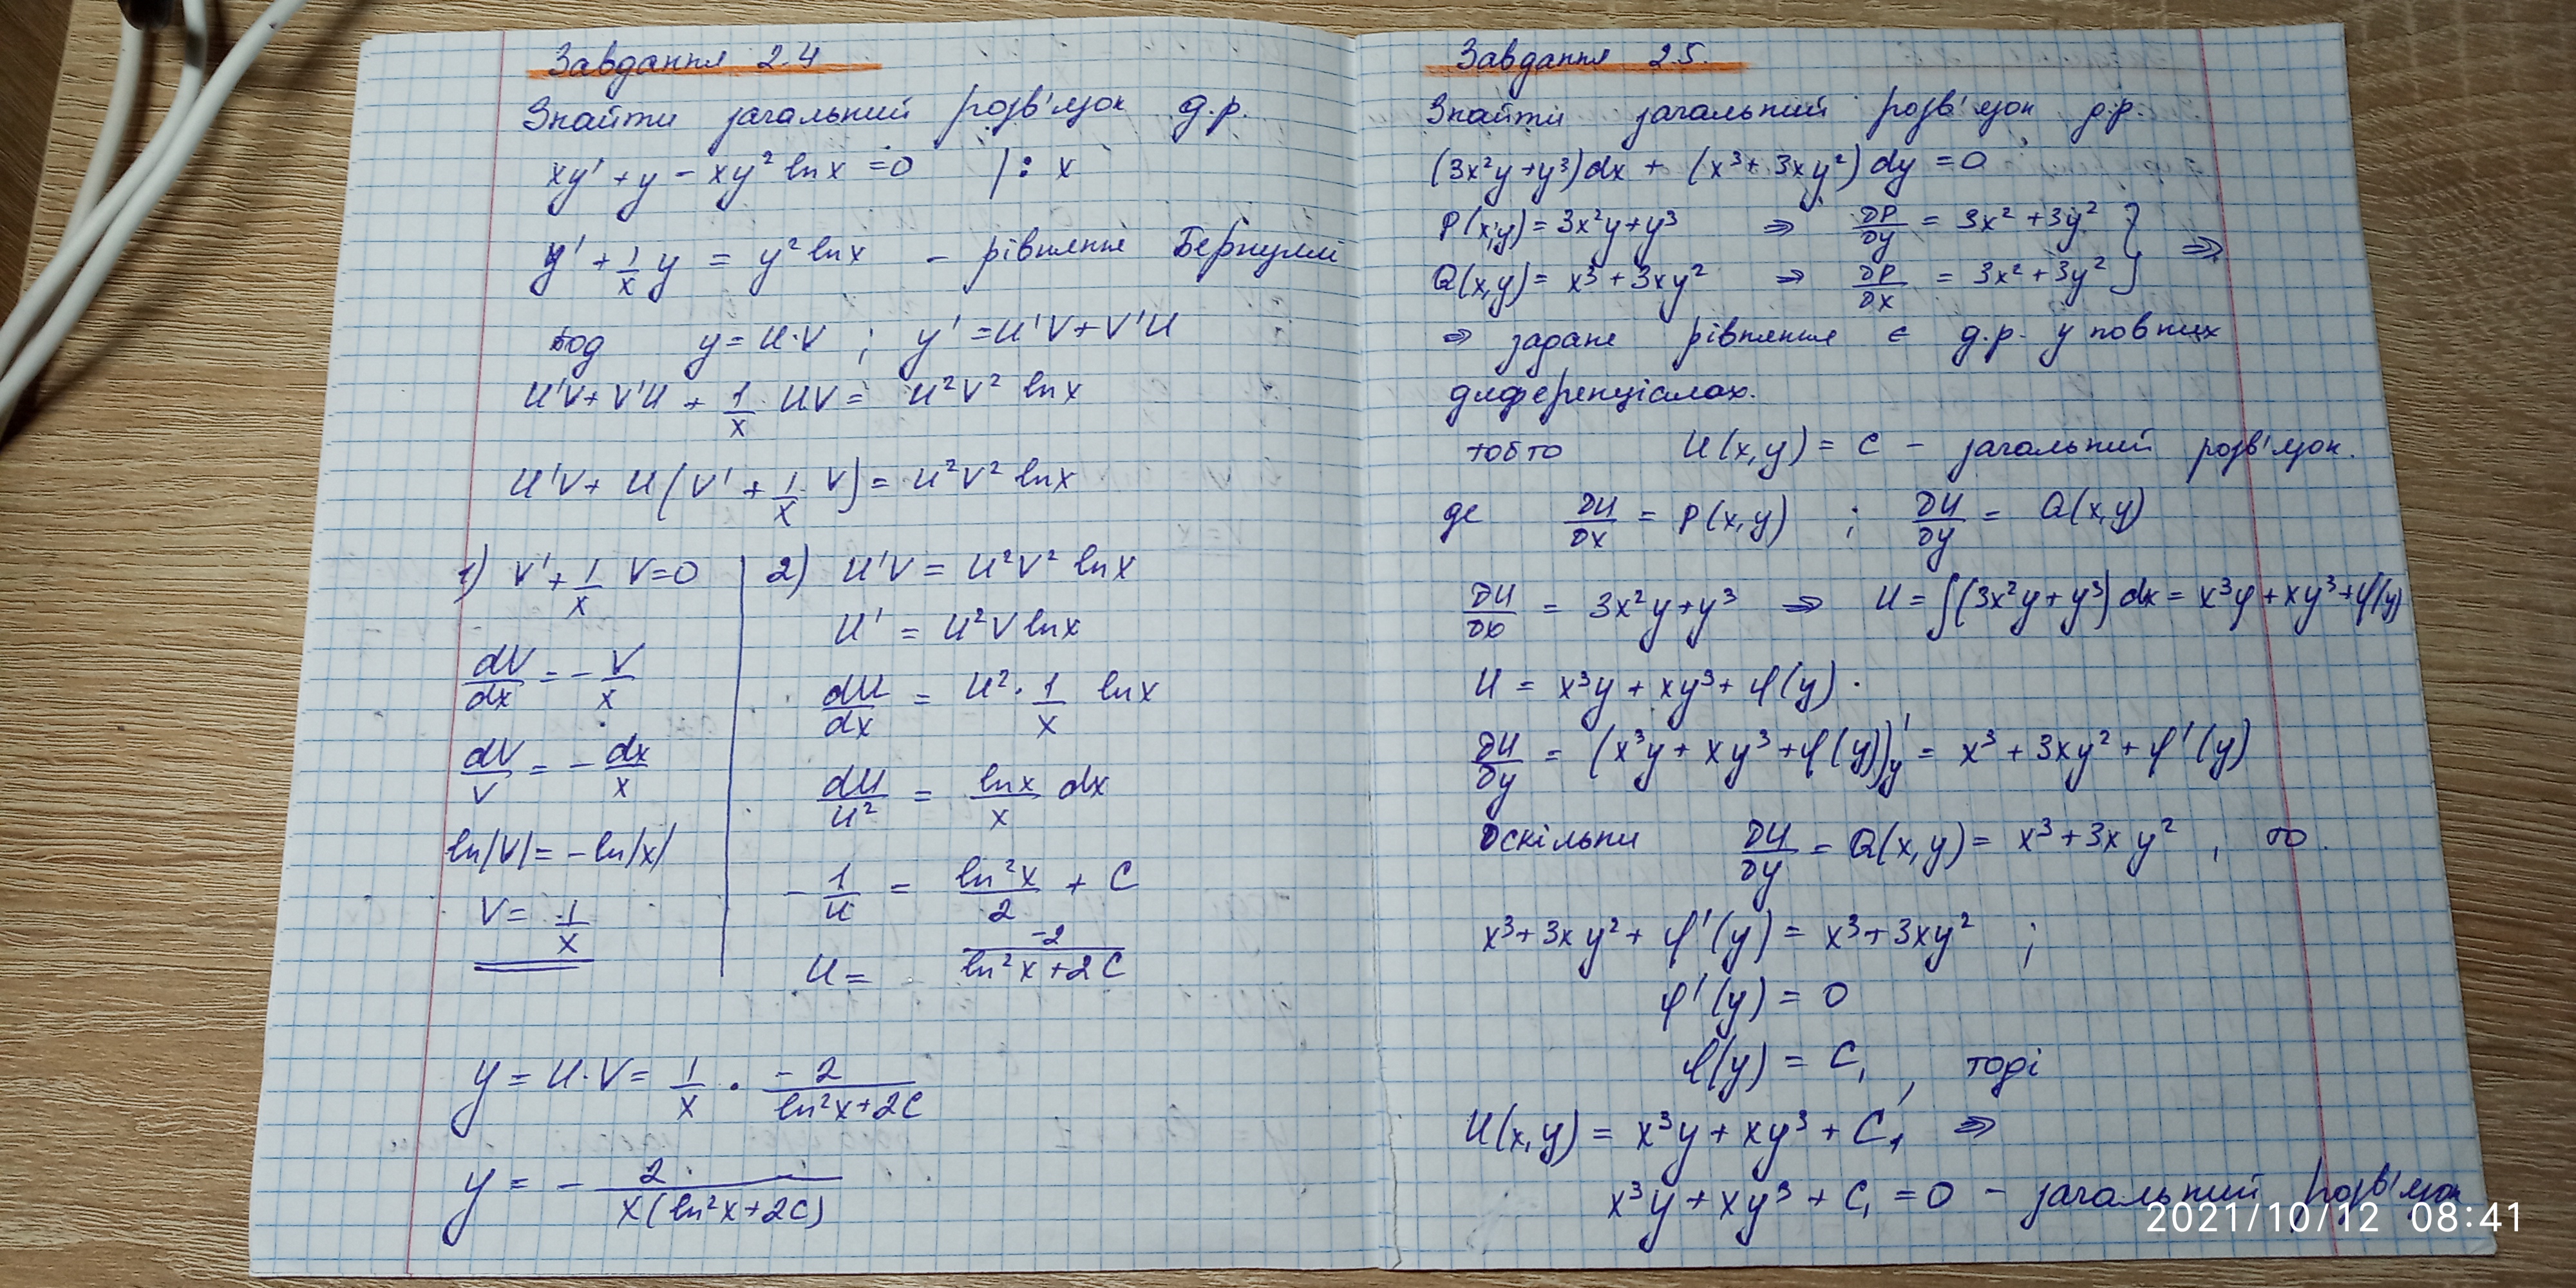 Завдання 2.4
Знайти загальний розв'язок д.р.
xy' + y - xy² ln x = 0 | : x
y' + 1/x y = y² ln x - рівняння Бернуллі
y = U·V ; y' = U'V + V'U
U'V + V'U + 1/x · UV = U²V² ln x
U'V + U(V' + 1/x · V) = U²V² ln x
1) V' + 1/x V = 0
dV/dx = - V/x
dV/V = - dx/x
ln|V| = -ln|x|
V = 1/x
2) U'V = U²V² ln x
U' = U²V ln x
dU/dx = U² · 1/x ln x
dU/U² = ln x/x dx
- 1/U = ln²x/2 + C
U = -2/(ln²x + 2C)
y = U·V = 1/x · -2/(ln²x + 2C)
y = - 2/(x(ln²x + 2C))
Завдання 2.5.
Знайти загальний розв'язок д.р.
(3x²y + y³)dx + (x³ + 3xy²)dy = 0
P(x,y) = 3x²y + y³ ⇒ ∂P/∂y = 3x² + 3y² }
Q(x,y) = x³ + 3xy² ⇒ ∂P/∂x = 3x² + 3y² } ⇒
⇒ задане рівняння є д.р. у повних
диференціалах.
тобто U(x,y) = C - загальний розв'язок.
де ∂U/∂x = P(x,y) ; ∂U/∂y = Q(x,y)
∂U/∂x = 3x²y + y³ ⇒ U = ∫(3x²y + y³)dx = x³y + xy³ + φ(y)
U = x³y + xy³ + φ(y).
∂U/∂y = (x³y + xy³ + φ(y))'y = x³ + 3xy² + φ'(y)
Оскільки ∂U/∂y = Q(x,y) = x³ + 3xy² , то
x³ + 3xy² + φ'(y) = x³ + 3xy² ;
φ'(y) = 0
φ(y) = C₁ , тоді
U(x,y) = x³y + xy³ + C₁ ⇒
x³y + xy³ + C₁ = 0 - загальний розв'язок
2021/10/12 08:41